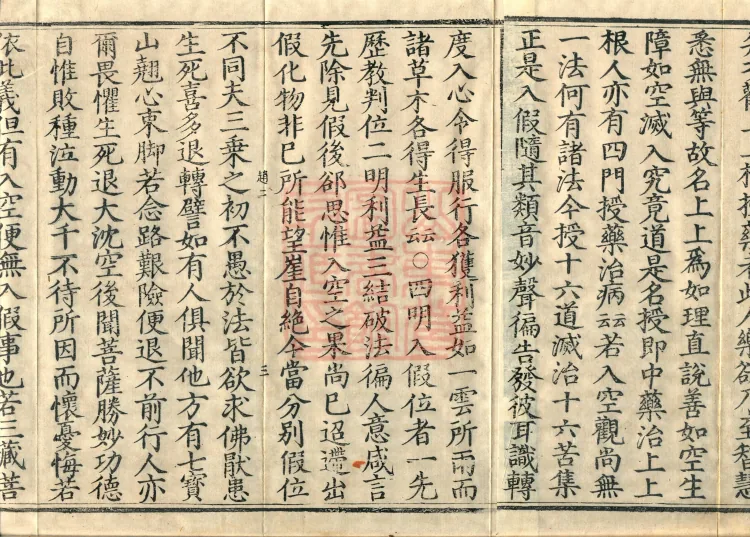 此人樂欲乃至智慧
悉無與等故名上上為如理直說善如空生
障如空滅入究竟道是名授即中藥治上上
根人亦有四門授藥治病云云若入空觀尚無
一法何有諸法今授十六道滅治十六苦集
正是入假隨其類音妙聲徧告發彼耳識轉
度入心令得服行各獲利益如一雲所雨而
諸草木各得生長云云○四明入假位者一先
歷教判位二明利益三結破法徧人意咸言
先除見假後郤思惟入空之果尚已迢遰出
假化物非已所能望崖自絕今當分別假位
趙二 三
不同夫三乘之初不愚於法皆欲求佛猒患
生死喜多退轉譬如有人俱聞他方有七寶
山翹心束脚若念路艱險便退不前行人亦
爾畏懼生死退大沈空後聞菩薩勝妙功德
自惟敗種泣動大千不待所因而懷憂悔若
依此義但有入空便無入假事也若三藏菩